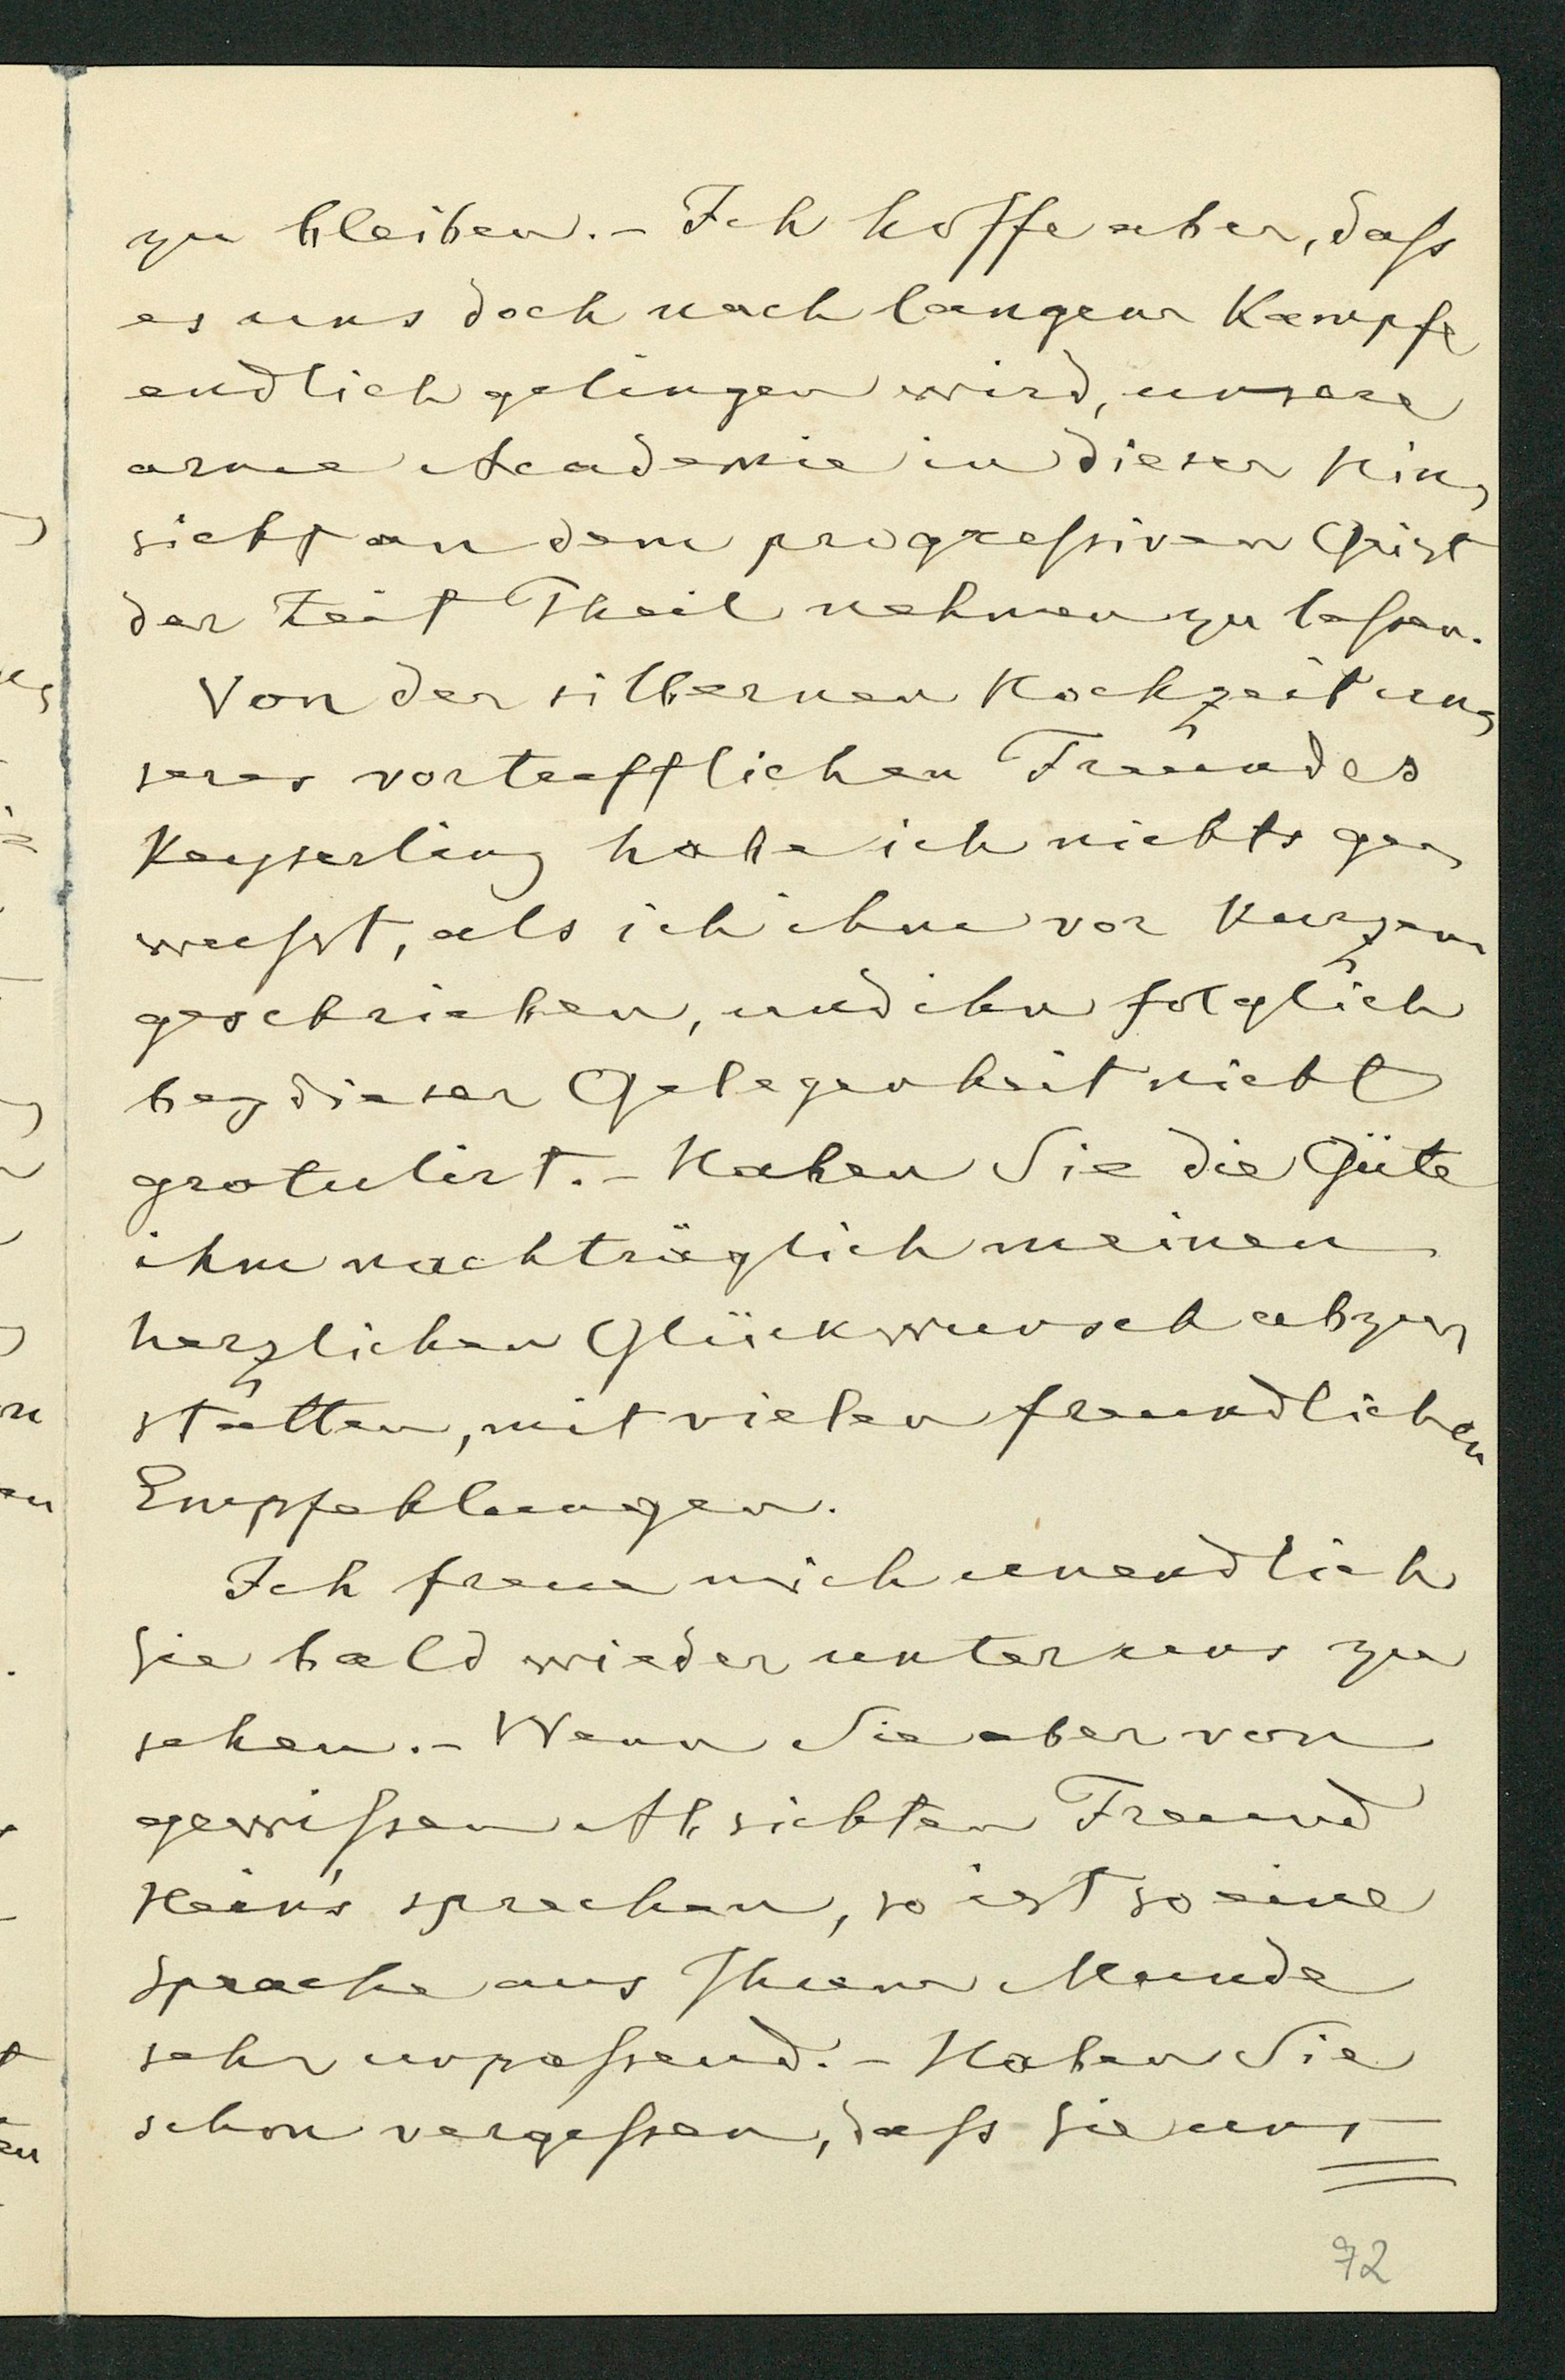 zu bleiben. – Ich hoffe aber, daſs
es uns doch nach langem Kampfe
endlich gelingen wird, unsere
arme Academie in dieser Hin-
sicht an dem progreſsiven Geist
der Zeit Theil nehmen zu laſsen.
Von der silbernen Hochzeit un-
seres vortrefflichen Freundes
Keyserling habe ich nichts ge-
wuſst, als ich ihm vor Kurzem
geschrieben, und ihm folglich
bey dieser Gelegenheit nicht
gratulirt. – Haben Sie die Güte
ihm nachträglich meinen
herzlichen Glückwunsch abzu-
statten, mit vielen freundlichen
Empfehlungen.
Ich freue mich unendlich
Sie bald wieder unter uns zu
sehen. – Wenn Sie aber von
gewiſsen Absichten Freund
Hein's sprechen, so ist so eine
Sprache aus Ihrem Munde
sehr unpaſsend. – Haben Sie
schon vergeſsen, daſs Sie uns
72